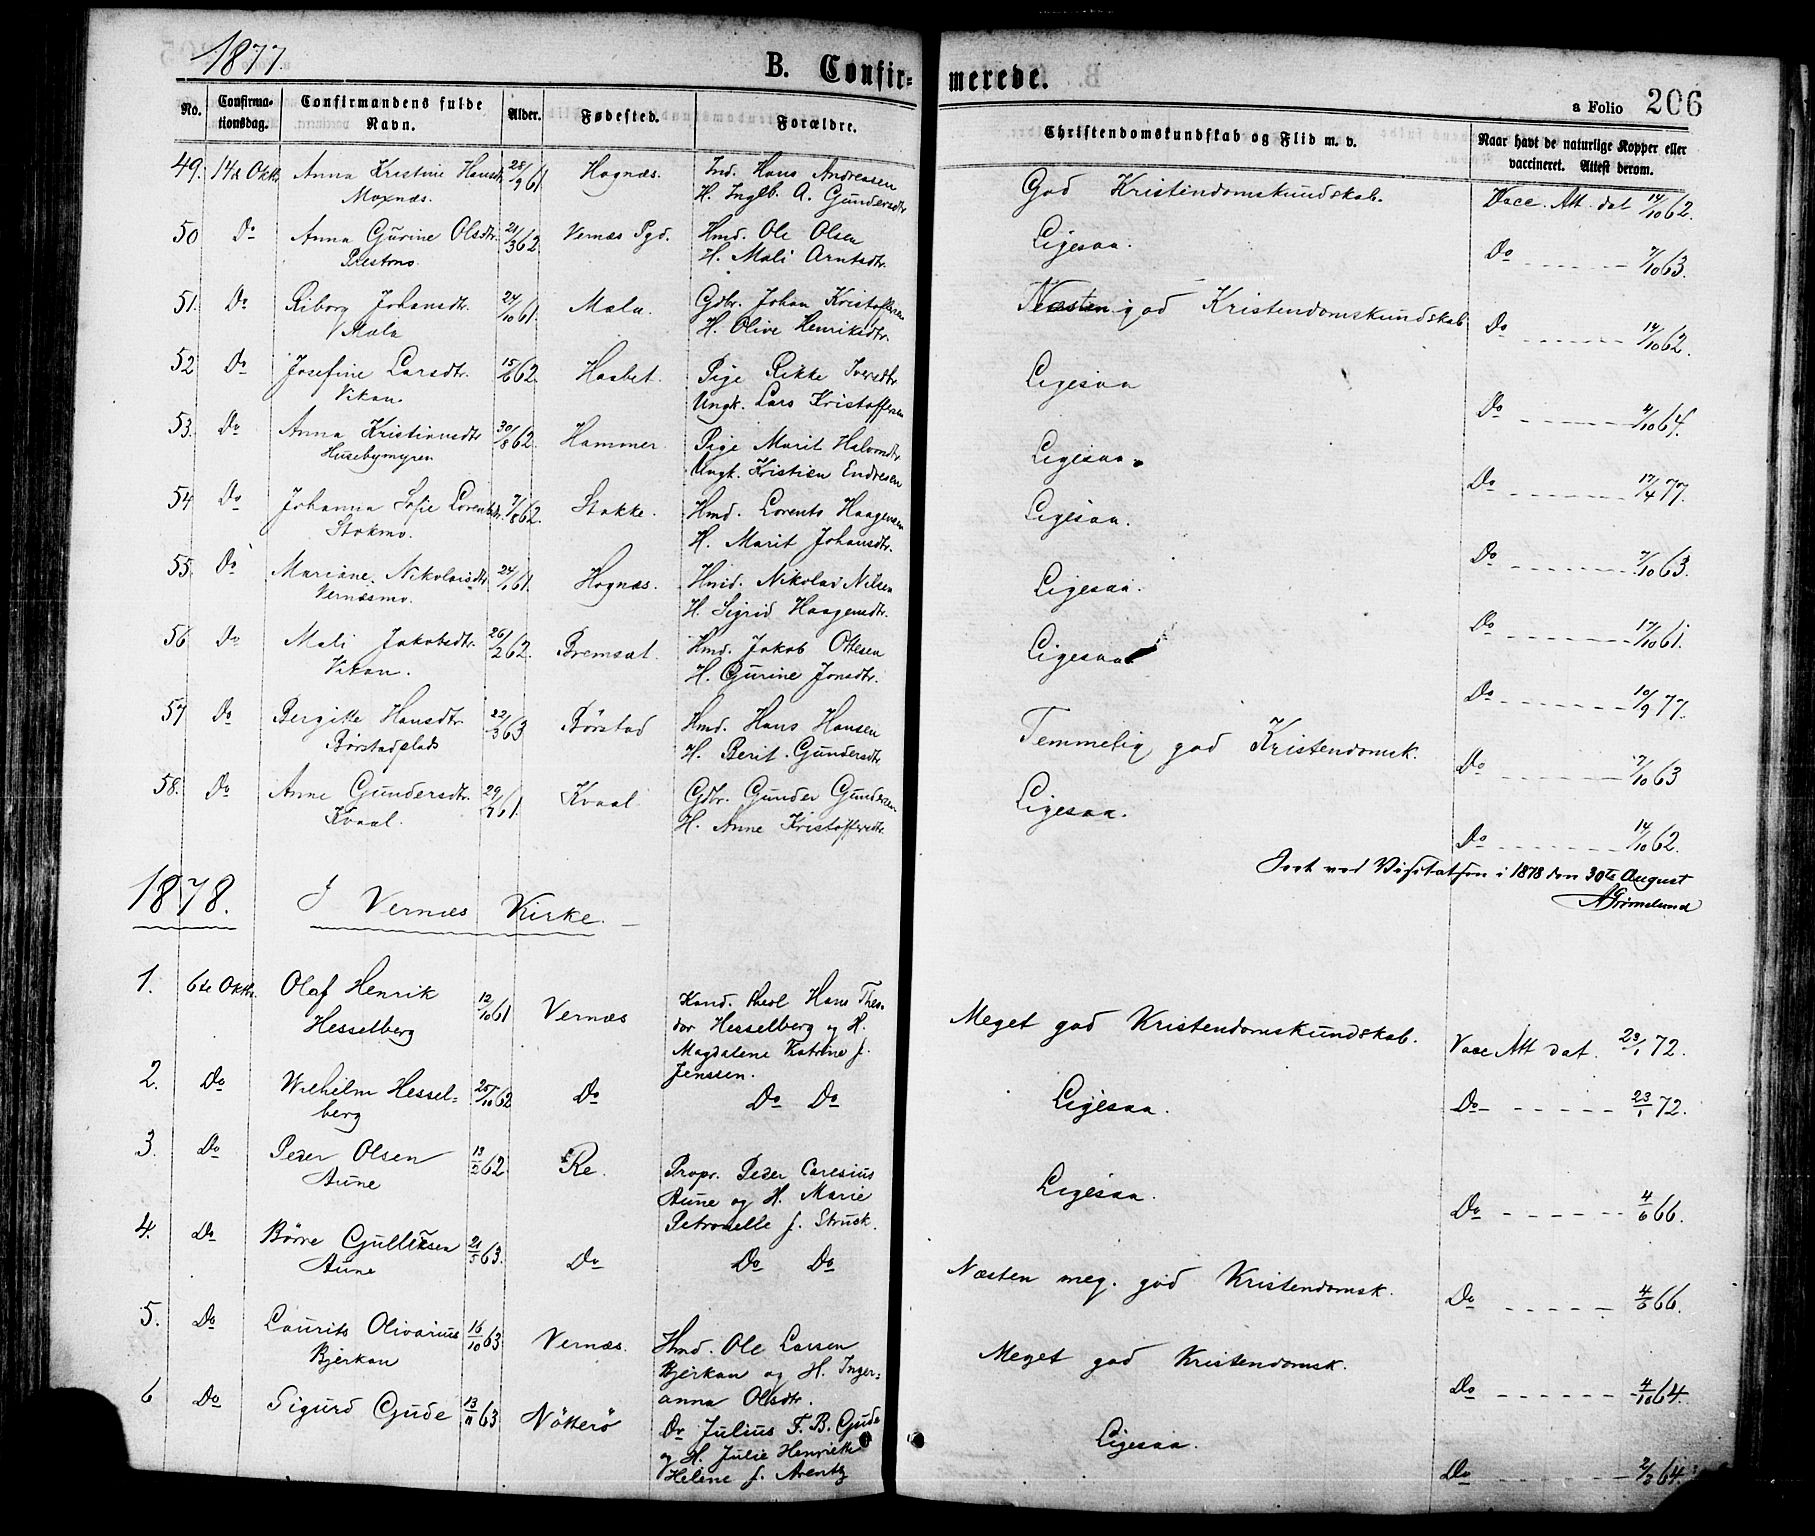 1877.
B. Confirmerede.
a Folio 206
No. Confirmationsdag. Confirmandens fulde Navn. Alder. Fødested. Forældre. Christendomskundskab og Flid m. v. Naar havt de naturlige Kopper eller vaccineret. Attest derom.
49. 14de Oktb. Anna Kristine Hansdtr. 28/9 61 Hognæs. Ind. Hans Andreasen God Kristendomskundskab. Vacc. Att. dat 14/10 62.
Moxnæs. H. Ingb. A. Gundersdtr
50 Do Anna Gurine Olsdtr. 21/3 62 Vernæs Pgd. Hmd. Ole Olsen Ligesaa. Do 7/10 63.
Prestmo H. Mali Arntsdtr.
51. Do Riborg Johansdtr. 24/10 61. Mæla. Gdbr. Johan Kristoffersen Næsten god Kristendomskundskab Do 14/10 62.
Mæla H. Olive Henriksdtr.
52 Do Josefine Larsdtr. 15/6 62. Hasbet. Pige Rikke Iversdtr Ligesaa Do 4/10 64.
Vikan. Ungk. Lars Kristoffersen
53. Do Anna Kristiansdtr 30/8 62. Hammer. Pige Marit Halvorsdtr Ligesaa. Do 17/4 77.
Husebymyren Ungk. Kristien Endresen
54 Do Johanna Sofie Lorentsdtr. 7/8 62. Stokke. Hmd. Lorents Haagensen Ligesaa. Do 7/10 63.
Stokmo. H. Marit Johansdtr.
55. Do Mariane Nikolaisdtr 24/1 61. Hognæs. Hmd. Nikolai Nilsen Ligesaa. Do 17/10 61.
Vernæsmo. H. Sigrid Haagensdtr.
56 Do Mali Jakobsdtr. 26/2 62. Bremset. Hmd. Jakob Ottesen Ligesaa Do 10/9 77.
Vikan. H. Gurine Jonsdtr.
57 Do Bergitte Hansdtr. 22/3 63 Børstad Hmd. Hans Hansen Temmelig god Kristendomsk. Do 7/10 63
Børstadplads H. Berit Gundersdtr
58. Do Anne Gundersdtr. 29/7 61. Kvaal Gdbr. Gunder Gundersen Ligesaa. Do 14/10 62.
Kvaal. H. Anne Kristoffersdtr.
Seet ved Visitatsen i 1878 den 30te August
A Grimelund
1878. I Vernæs Kirke.
1. 6te Oktb. Olaf Henrik 12/10 61 Vernæs Kand. theol Hans Theo- Meget god Kristendomskundskab. Vacc Att dat. 23/1 72.
Hesselberg dor Hesselberg og H.
Magdalene Katrine f.
Jenssen.
2. Do Wilhelm Hessel- 25/10 62 Do Do Do Ligesaa. Do 23/1 72.
berg
3. Do Peder Olsen 13/2 62 Re. Propr. Peder Caresius Ligesaa. Do 4/6 66.
Aune Aune og H. Marie
Petronelle f. Struck.
4. Do Børre Gulliksen 21/5 63. Do Do Do Næsten meg. god Kristendomsk. Do 4/6 66.
Aune
5. Do Laurits Olivarius 16/10 63 Vernæs. Hmd. Ole Larsen Meget god Kristendomsk. Do 4/10 64.
Bjerkan Bjerkan og H. Inger-
anna Olsdtr.
6 Do Sigurd Gude 13/11 63 Nötterö Dr Julius F. B. Gude Ligesaa. Do 2/3 64.
og H. Julie Henriette
Helene f. Arentz